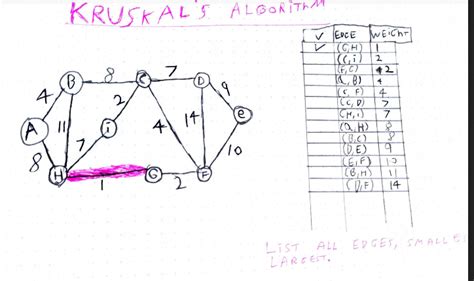 KRUSKAL'S ALGORITHM
✓ EDGE WEIGHT
✓ (G,H) 1
(C,i) 2
(F,G) 2
(A,B) 4
(C,F) 4
(C,D) 7
(H,i) 7
(A,H) 8
(B,C) 8
(D,E) 9
(E,F) 10
(B,H) 11
(D,F) 14
B 8 C 7 D
4 2 9
A 11 i 4 14 e
8 7 10
H 1 G 2 F
LIST ALL EDGES, SMALLE
LARGEST.